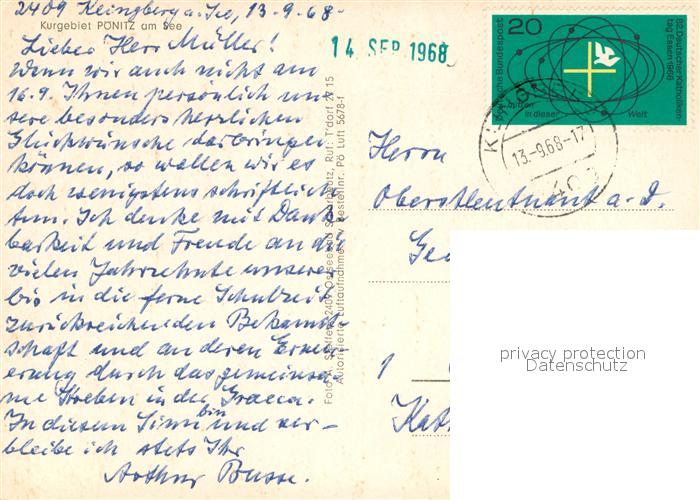 2409 Klingberg a. See, 13-9.68-
Kurgebiet PÖNITZ am See
Lieber Herr Müller!
Wenn wir auch nicht am
16.9. Ihnen persönlich un
sere besonders herzlichen
Glückwünsche darbringen
können, so wollen wir es
doch wenigstens schriftlich
tun. Ich denke mit Dank
barkeit und Freude an die
vielen Jahrzehnte unserer
bis in die ferne Schulzeit
zurückreichenden Bekannt-
schaft und an deren Erneu-
erung durch das gemeinsa-
me Streben in der Graeca.
In diesem Sinn bin und ver-
bleibe ich stets Ihr
Arthur Busse.
Ostseebad Scharbeutz, Ruf: T'dorf 21 15
Autorisierte Luftaufnahme Bestellnr. Pö Luft 5678-f
14. SEP. 1968
20
Deutsche Bundespost
82. Deutscher Katholiken-
tag Essen 1968
mitten
in dieser
Welt
13.-9.68-17
Herrn
Oberstleutnant a. D.
Ge
1
Kath
privacy protection
Datenschutz